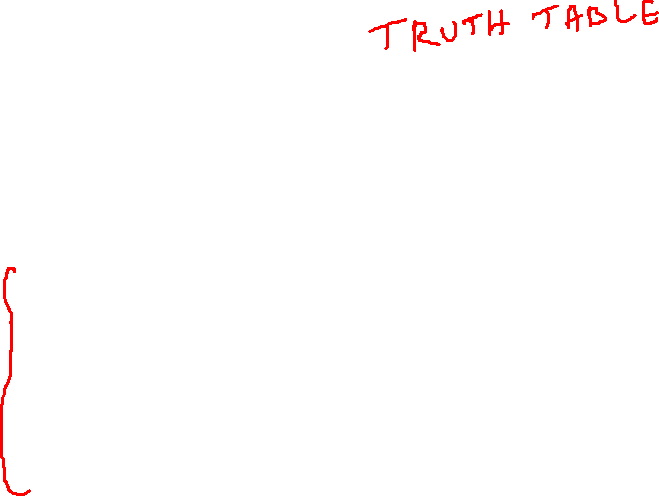 TRUTH TABLE